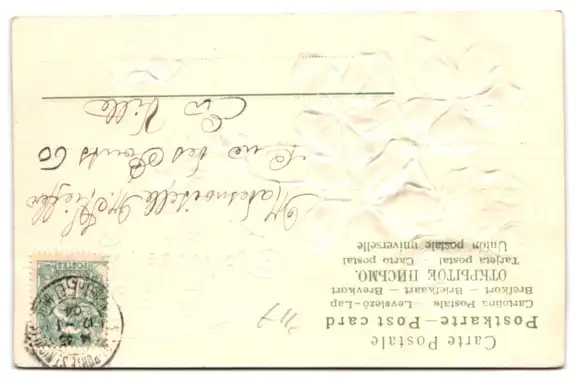 Carte Postale
Postkarte – Post card
Cartolina Postale – Levelező-Lap
Brefkort – Briefkaart – Brevkort
ОТКРЫТОЕ ПИСЬМО.
Tarjeta postal Carto postal
Union postale universelle
Mademoiselle M
Rue des Ponts 60
En Ville